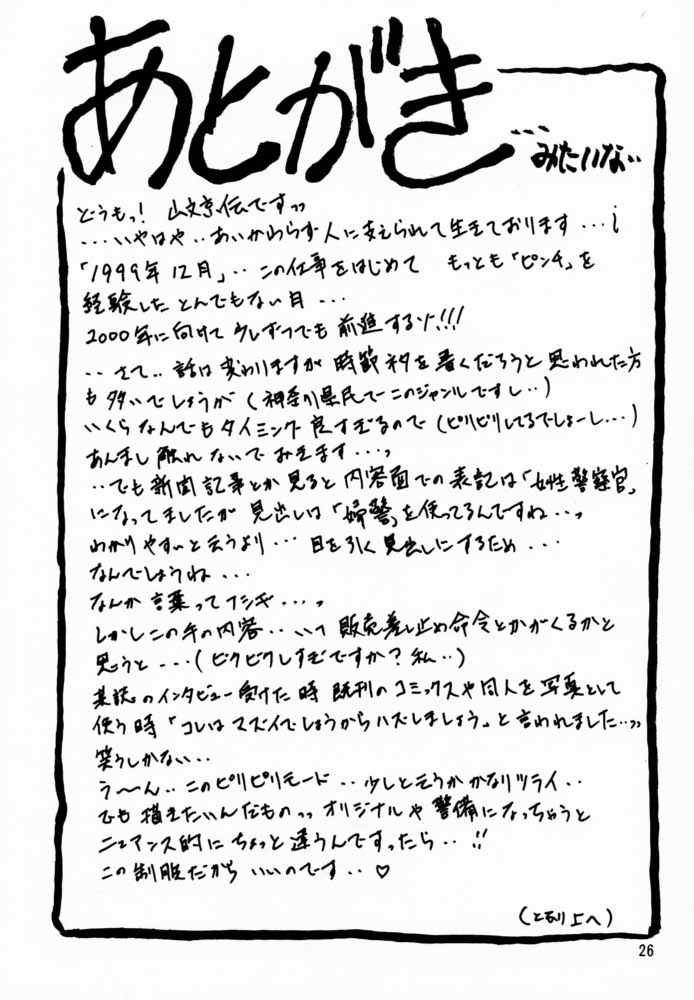 あとがき
...みたいな..
どうもっ! 山文京伝ですッ
...いやはや..あいかわらず人に支えられて生きております...
「1999年12月」..この仕事をはじめて もっとも「ピンチ」を
経験したとんでもない月...
2000年に向けて少しずつでも前進するゾ!!!
..さて..話は変わりますが時節ネタを書くだろうと思われた方
も多いでしょうが(神奈川県民でこのジャンルですし..)
いくらなんでもタイミング良すぎるので(ピリピリしてるでしょーし...)
あんまし触れないでおきます...っ
..でも新聞記事とか見ると内容面での表記は「女性警察官」
になってましたが見出しは「婦警」を使ってるんですね...っ
わかりやすいと云うより...目を引く見出しにするため...
なんでしょうね...
なんか言葉ってフシギ...っ
しかしこの手の内容..いつ販売差し止め命令とかがくるかと
思うと...(ビクビクしすぎですか?私..)
某誌のインタビュー受けた時既刊のコミックスや同人を写真として
使う時「コレはマズイでしょうからハズしましょう」と言われました..ッ
笑うしかない..
う〜ん..このピリピリモード..少しと云うかかなりツライ..
でも描きたいんだものッオリジナルや警備になっちゃうと
ニュアンス的にちょっと違うんですったら..!!
この制服だから いいのです..♡
(となり上へ)
26